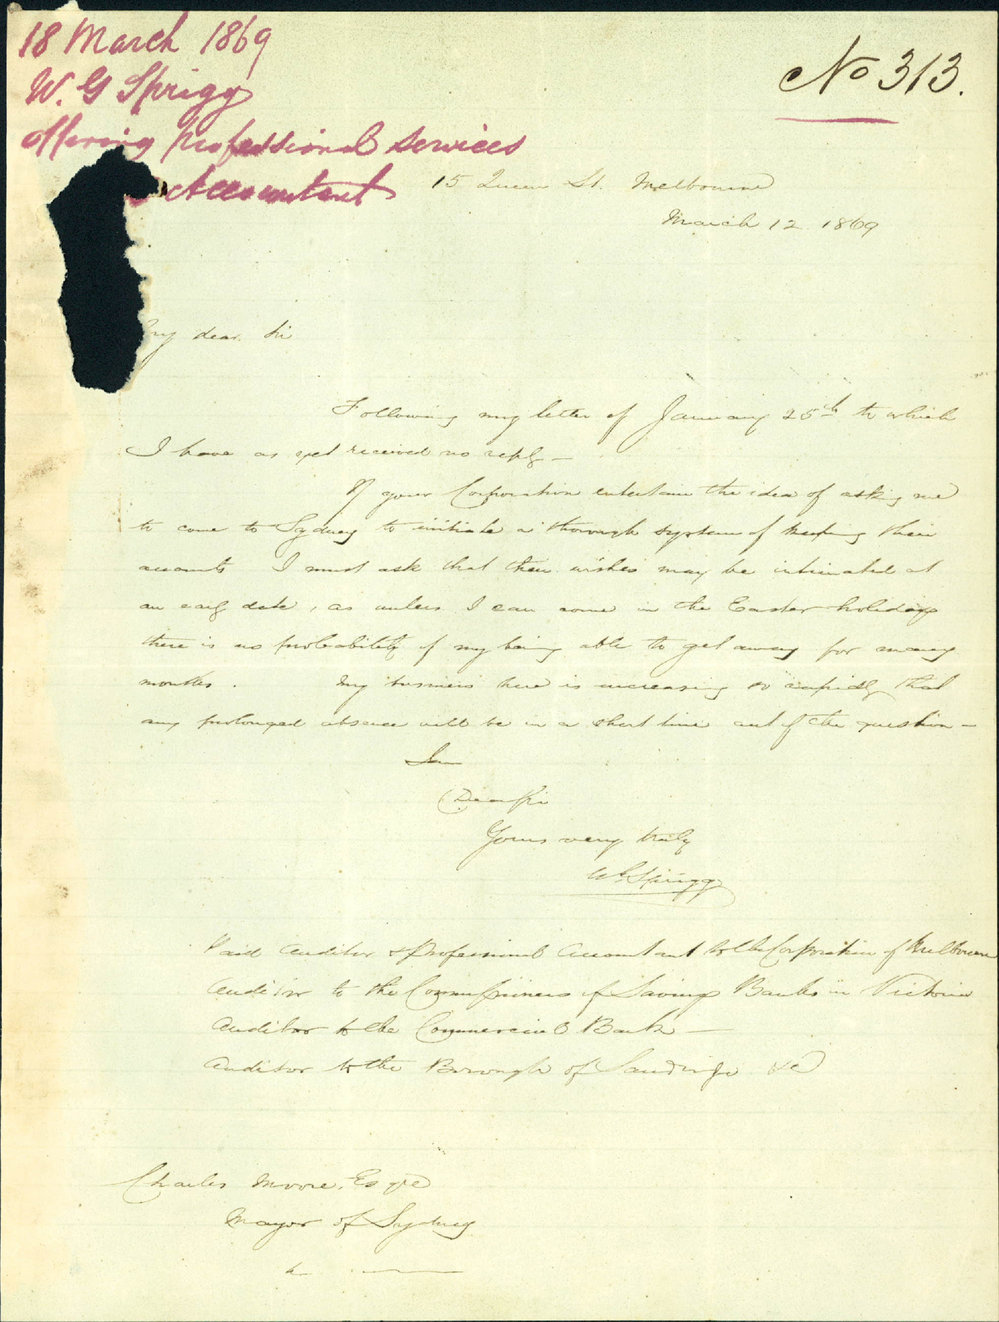 18 March 1869
W. G Sprigg
offering professional services
Accountant
No 313.
15 Queen St. Melbourne
March 12 1869
My dear Sir
Following my letter of January 25th to which
I have as yet received no reply —
If your Corporation entertain the idea of asking me
to come to Sydney to initiate a thorough system of keeping their
accounts I must ask that their wishes may be intimated at
an early date, as unless I can come in the Easter holidays
there is no probability of my being able to get away for many
months. My business here is increasing so rapidly that
any prolonged absence will be in a short time out of the question —
I am
Dear Sir
Yours very truly
W G Sprigg
Paid Auditor & Professional Accountant to the Corporation of Melbourne
Auditor to the Commissioners of Savings Banks in Victoria
Auditor to the Commercial Bank —
Auditor to the Borough of &c
Charles Moore, Esqre
Mayor of Sydney